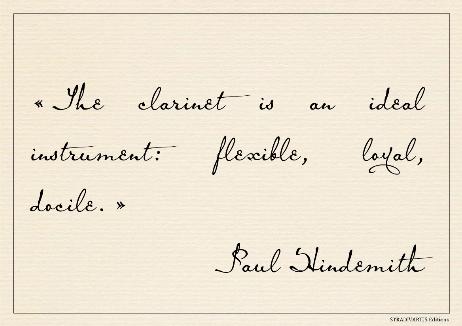 « The clarinet is an ideal
instrument: flexible, loyal,
docile. »
Paul Hindemith
STRADIVARIUS Editions